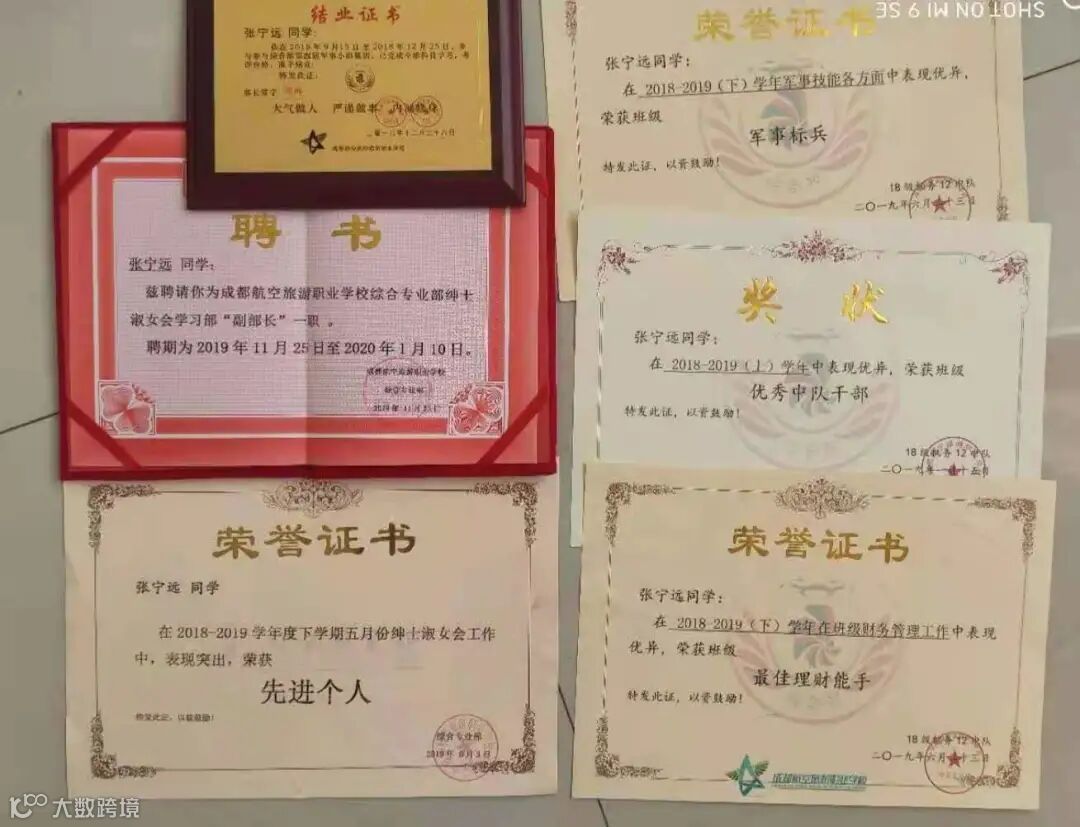 结业证书
张宁远 同学：
大气做人 严谨做事
聘 书
张宁远 同学：
兹聘请你为成都航空旅游职业学校综合专业部绅士
淑女会学习部“副部长”一职 。
聘期为2019年11月25日至2020年1月10日。
荣誉证书
张宁远 同学
在 2018-2019 学年度下学期五月份绅士淑女会工作
中，表现突出，荣获
先进个人
特发此证，以兹鼓励！
综合专业部
荣誉证书
张宁远同学：
在 2018-2019（下）学年军事技能各方面中表现优异，
荣获班级
军事标兵
特发此证，以资鼓励！
18 级航务 12 中队
二〇一九年六月
奖 状
张宁远同学：
在 2018-2019（上）学年中表现优异，荣获班级
优秀中队干部
特发此证，以资鼓励！
18 级航务 12 中队
二〇一九年一月十五日
荣誉证书
张宁远同学：
在 2018-2019（下）学年在班级财务管理工作中表现
优异，荣获班级
最佳理财能手
特发此证，以资鼓励！
18 级航务 12 中队
二〇一九年六月十三日
成都航空旅游职业学校
SHOT ON MI 9 SE
大数跨境